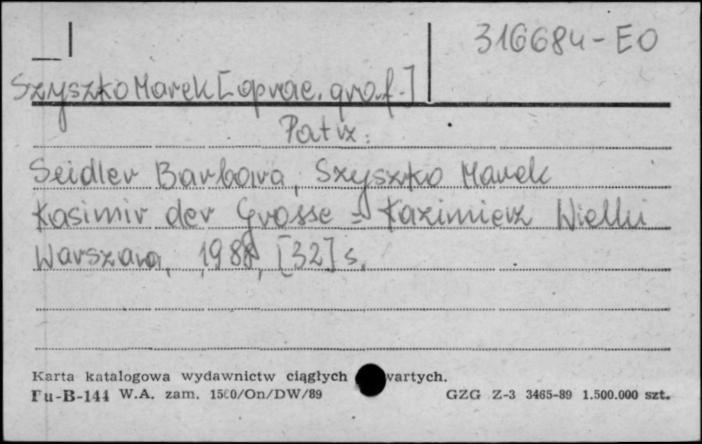 316684-EO
Szyszko Marek [oprac. graf.]
Patrz:
Seidler Barbara, Szyszko Marek
Kasimir der Grosse = Kazimierz Wielki
Warszawa, 1988, [32] s.
Karta katalogowa wydawnictw ciągłych vartych.
Pu-B-144 W.A. zam. 1580/On/DW/89 GZG Z-3 3465-89 1.500.000 szt.